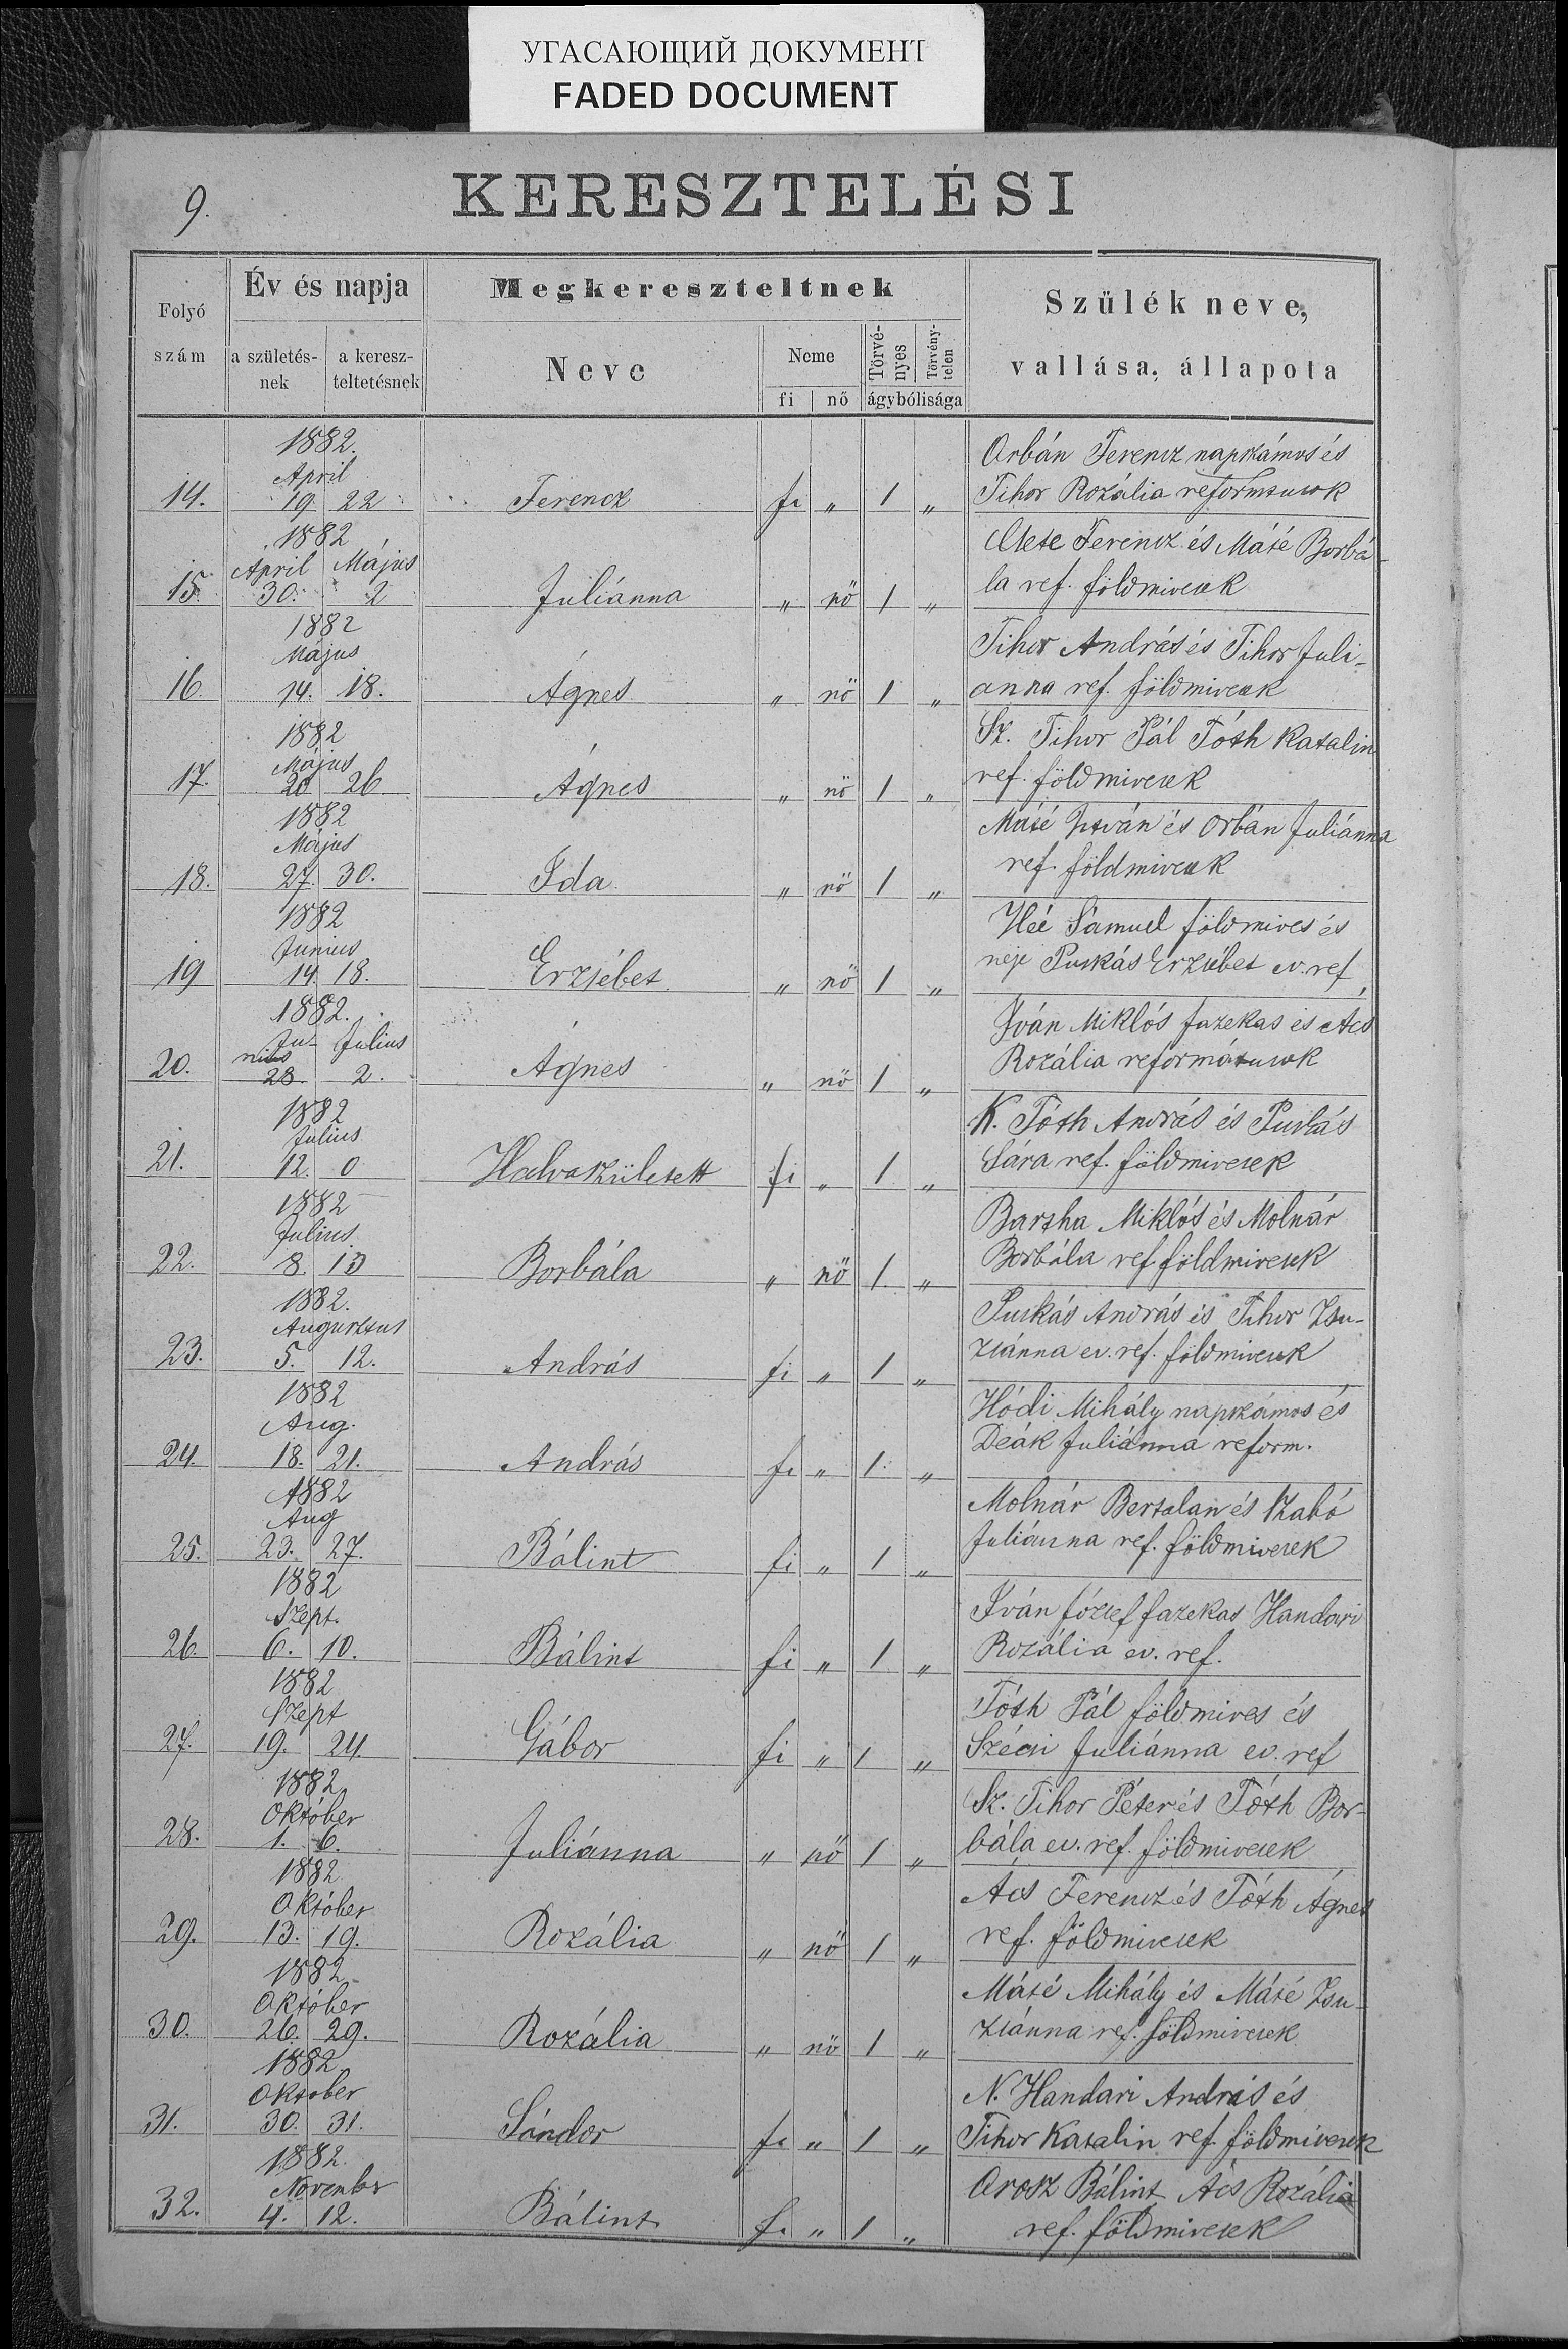 УГАСАЮЩИЙ ДОКУМЕНТ
FADED DOCUMENT
9.
KERESZTELÉSI
Folyó szám
Év és napja
a születés-nek
a keresz-teltetésnek
Megkereszteltnek
Neve
Neme
fi nő
Törvé-nyes
Törvény-telen
ágybólisága
Szülék neve,
vallása, állapota
1882.
April
Orbán Ferencz napszámos és
14. 19 22 Ferencz fi " 1 " Tihor Rozália reformatusok
1882
April Május
Mete Ferencz és Máté Borbá-
15. 30. 2 Juliánna " nö 1 " la ref. földmivesek
1882
Május
Tihor András és Tihor Juli-
16. 14. 18. Ágnes " nö 1 " anna ref. földmivesek
1882
Május
Sz. Tihor Pál Tóth Katalin
17. 20 26 Ágnes " nö 1 " ref. földmivesek
1882
Május
Máté István és Orbán Juliánna
18. 27. 30. Ida " nö 1 " ref. földmivesek
1882
Junius
Sámuel földmives és
19 14. 18. Erzsébet " nö 1 " neje Puskás Erzsébet ev. ref
1882.
Ju-nius Julius
Iván Miklós fazekas és Ács
20. 28. 2. Ágnes " nö 1 " Rozália reformátusok
1882
Julius
K. Tóth András és Puskás
21. 12. 0 Halvaszületett fi " 1 " Sára ref. földmivesek
1882
Julius
Bartha Miklós és Molnár
22. 8. 13 Borbála " nö 1. " Borbála ref. földmivesek
1882.
Augusztus
Puskás András és Tihor Zsu-
23. 5. 12. András fi " 1 " zsánna ev. ref. földmivesek
1882
Aug.
Hódi Mihály napszámos és
24. 18. 21. András fi " 1. " Deák Juliánna reform.
1882
Aug
Molnár Bertalan és Szabó
25. 23. 27. Bálint fi " 1 " Juliánna ref. földmivesek
1882
Szept.
Iván József fazekas Handari
26. 6. 10. Bálint fi " 1 " Rozália ev. ref.
1882
Szept
Tóth Pál földmives és
27. 19. 24. Gábor fi " 1 " Szécsi Juliánna ev. ref
1882
Október
Sz. Tihor Péter és Tóth Bor-
28. 1. 6. Juliánna " nö 1 " bála ev. ref. földmivesek
1882
Október
Ács Ferencz és Tóth Ágnes
29. 13. 19. Rozália " nö 1 " ref. földmivesek
1882
Október
Máté Mihály és Máté Zsu-
30. 26. 29. Rozália " nö 1 " zsánna ref. földmivesek
1882
Oktober
N. Handari András és
31. 30. 31. Sándor fi " 1 " Tihor Katalin ref. földmivesek
1882.
November
Orosz Bálint Ács Rozália
32. 4. 12. Bálint fi " 1 " ref. földmivesek